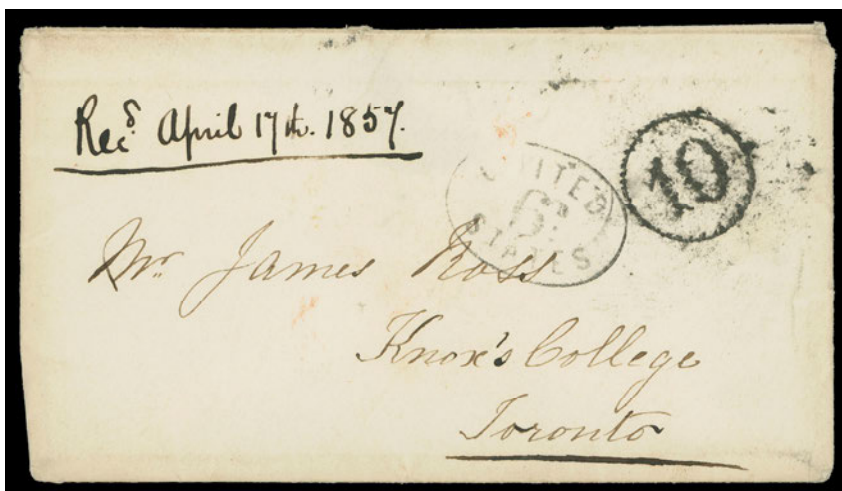 Recd. April 17th. 1857.
10
UNITED
6d
STATES
Mr. James Ross
Knox's College
Toronto